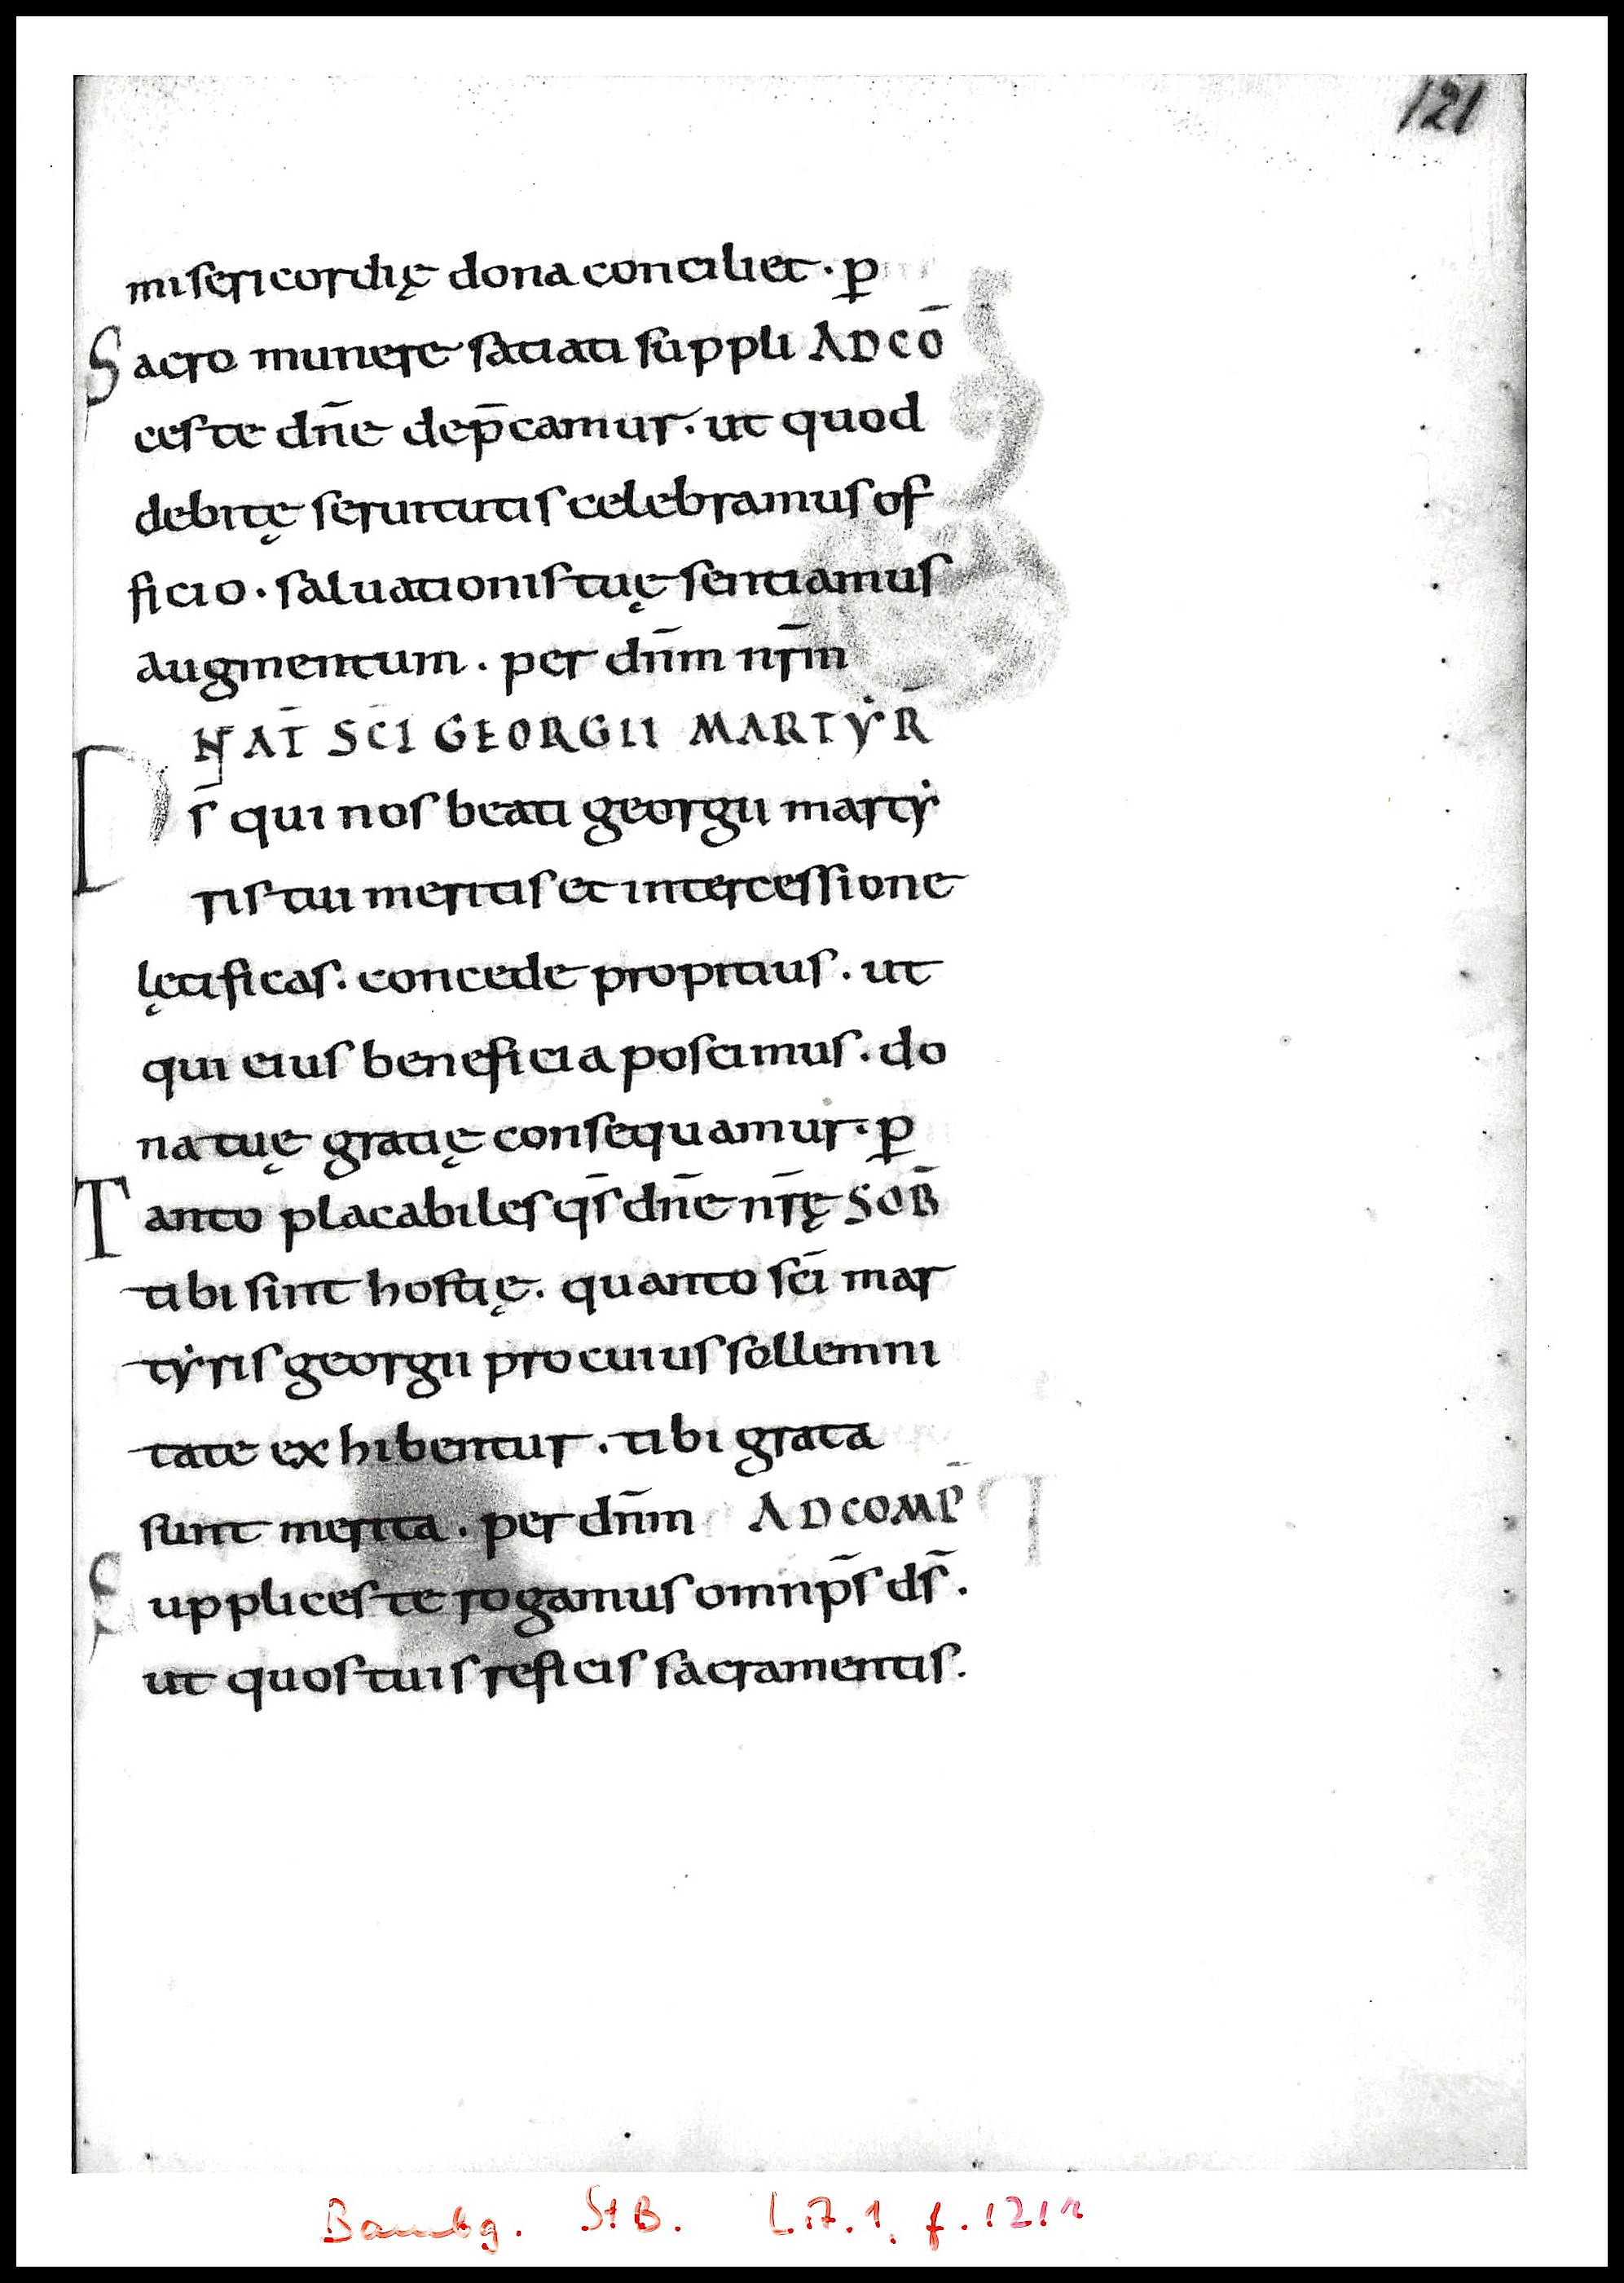 121
misericordię dona conciliet · p̲
Sacro munere satiati suppli ADCŌ
ces te dn̄e dep̄camur · ut quod
debitę seruitutis celebramus of
ficio · saluationis tuę sentiamus
augmentum · per dn̄m nr̄m
NAT̄ SC̄I GEORGII MARTẎR̄
Ds̄ qui nos beati georgii martẏ
ris tui meritis et intercessione
lętificas · concede propitius · ut
qui eius beneficia poscimus · do
na tuę gratię consequamur · p̲
Tanto placabiles qs̄ dn̄e nr̄ę SOB̄
tibi sint hostię · quanto sc̄i mar
tẏris georgii pro cuius sollemni
tate exhibentur · tibi grata
sunt merita · per dn̄m ADCOMP̄
Supplices te rogamus omnip̄s ds̄ ·
ut quos tuis reficis sacramentis ·
Bambg. StB. Lit. 1, f. 121r